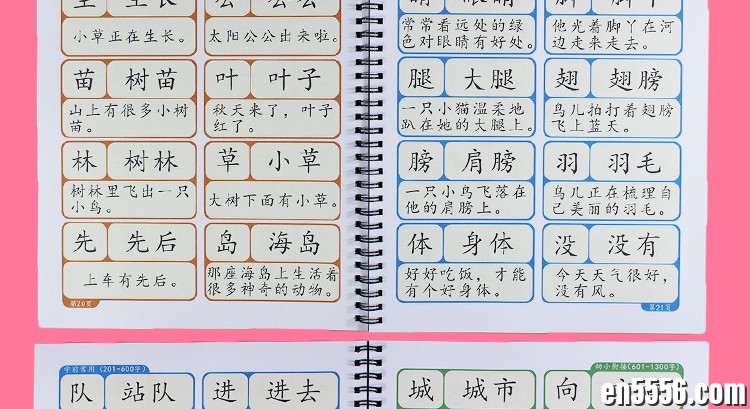 小草正在生长。
太阳公公出来啦。
苗 树苗
山上有很多小树
苗。
叶 叶子
秋天来了，叶子
红了。
林 树林
树林里飞出一只
小鸟。
草 小草
大树下面有小草。
先 先后
上车有先后。
岛 海岛
那座海岛上生活着
很多神奇的动物。
第20页
常常看远处的绿
色对眼睛有好处。
他光着脚丫在河
边走来走去。
腿 大腿
一只小猫温柔地
趴在她的大腿上。
翅 翅膀
鸟儿拍打着翅膀
飞上蓝天。
膀 肩膀
一只小鸟飞落在
他的肩膀上。
羽 羽毛
鸟儿正在梳理自
己美丽的羽毛。
体 身体
好好吃饭，才能
有个好身体。
没 没有
今天天气很好，
没有风。
第21页
学前常用（201-600字）
队 站队
进 进去
幼小衔接(601-1300字)
城 城市
向
en5556.com